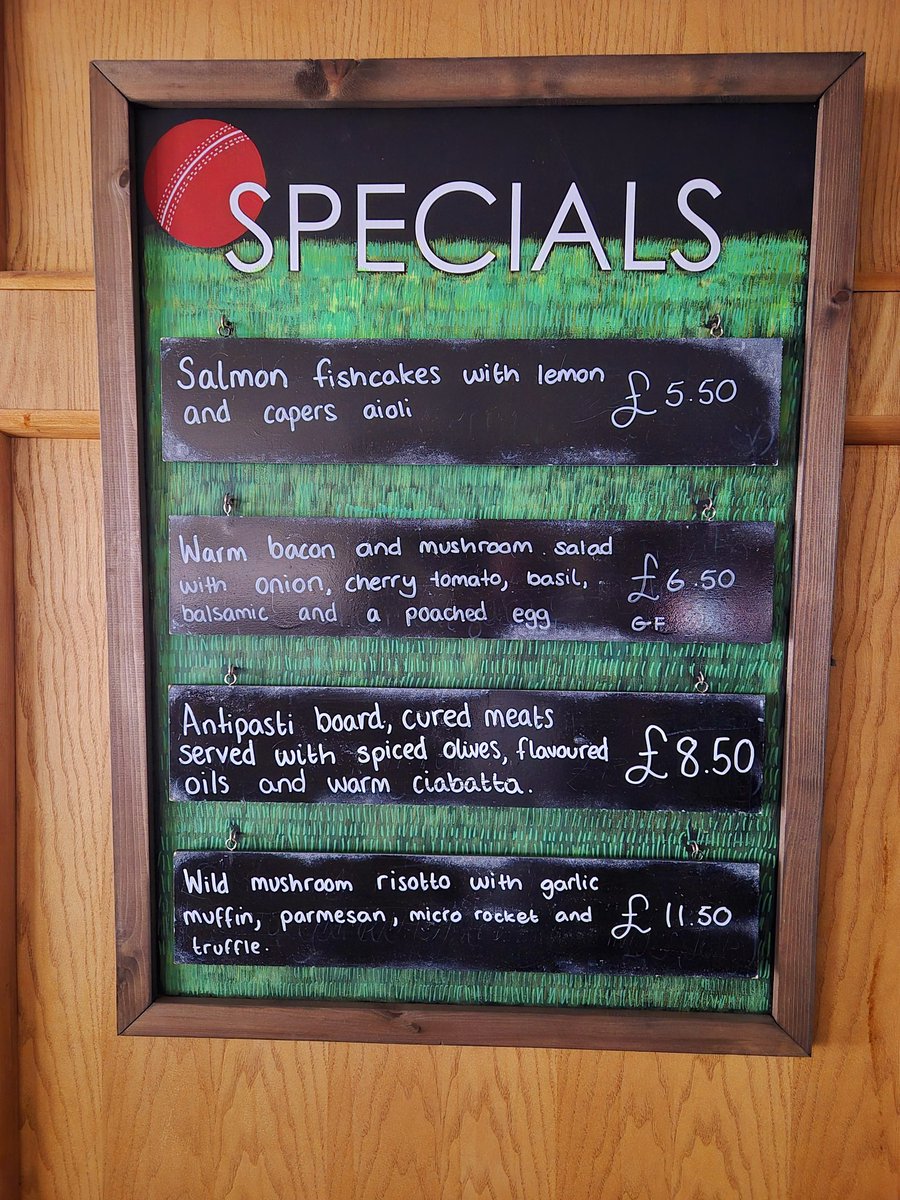 SPECIALS
Salmon fishcakes with lemon
and capers aioli
£5.50
Warm bacon and mushroom salad
with onion, cherry tomato, basil,
balsamic and a poached egg
£6.50
GF
Antipasti board, cured meats
served with spiced olives, flavoured
oils and warm ciabatta.
£8.50
Wild mushroom risotto with garlic
muffin, parmesan, micro rocket and
truffle.
£11.50